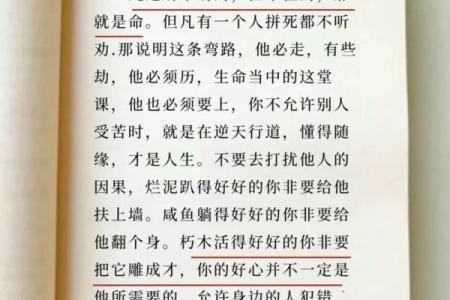 就是命。但凡有一个人拼死都不听
劝.那说明这条弯路，他必走，有些
劫，他必须历，生命当中的这堂
课，他也必须要上，你不允许别人
受苦时，就是在逆天行道，懂得随
缘，才是人生。不要去打扰他人的
因果，烂泥趴得好好的你非要给他
扶上墙。咸鱼躺得好好的你非要给
他翻个身。朽木活得好好的你非要
把它雕成才，你的好心并不一定是
他所需要的，允许身边的人犯错，